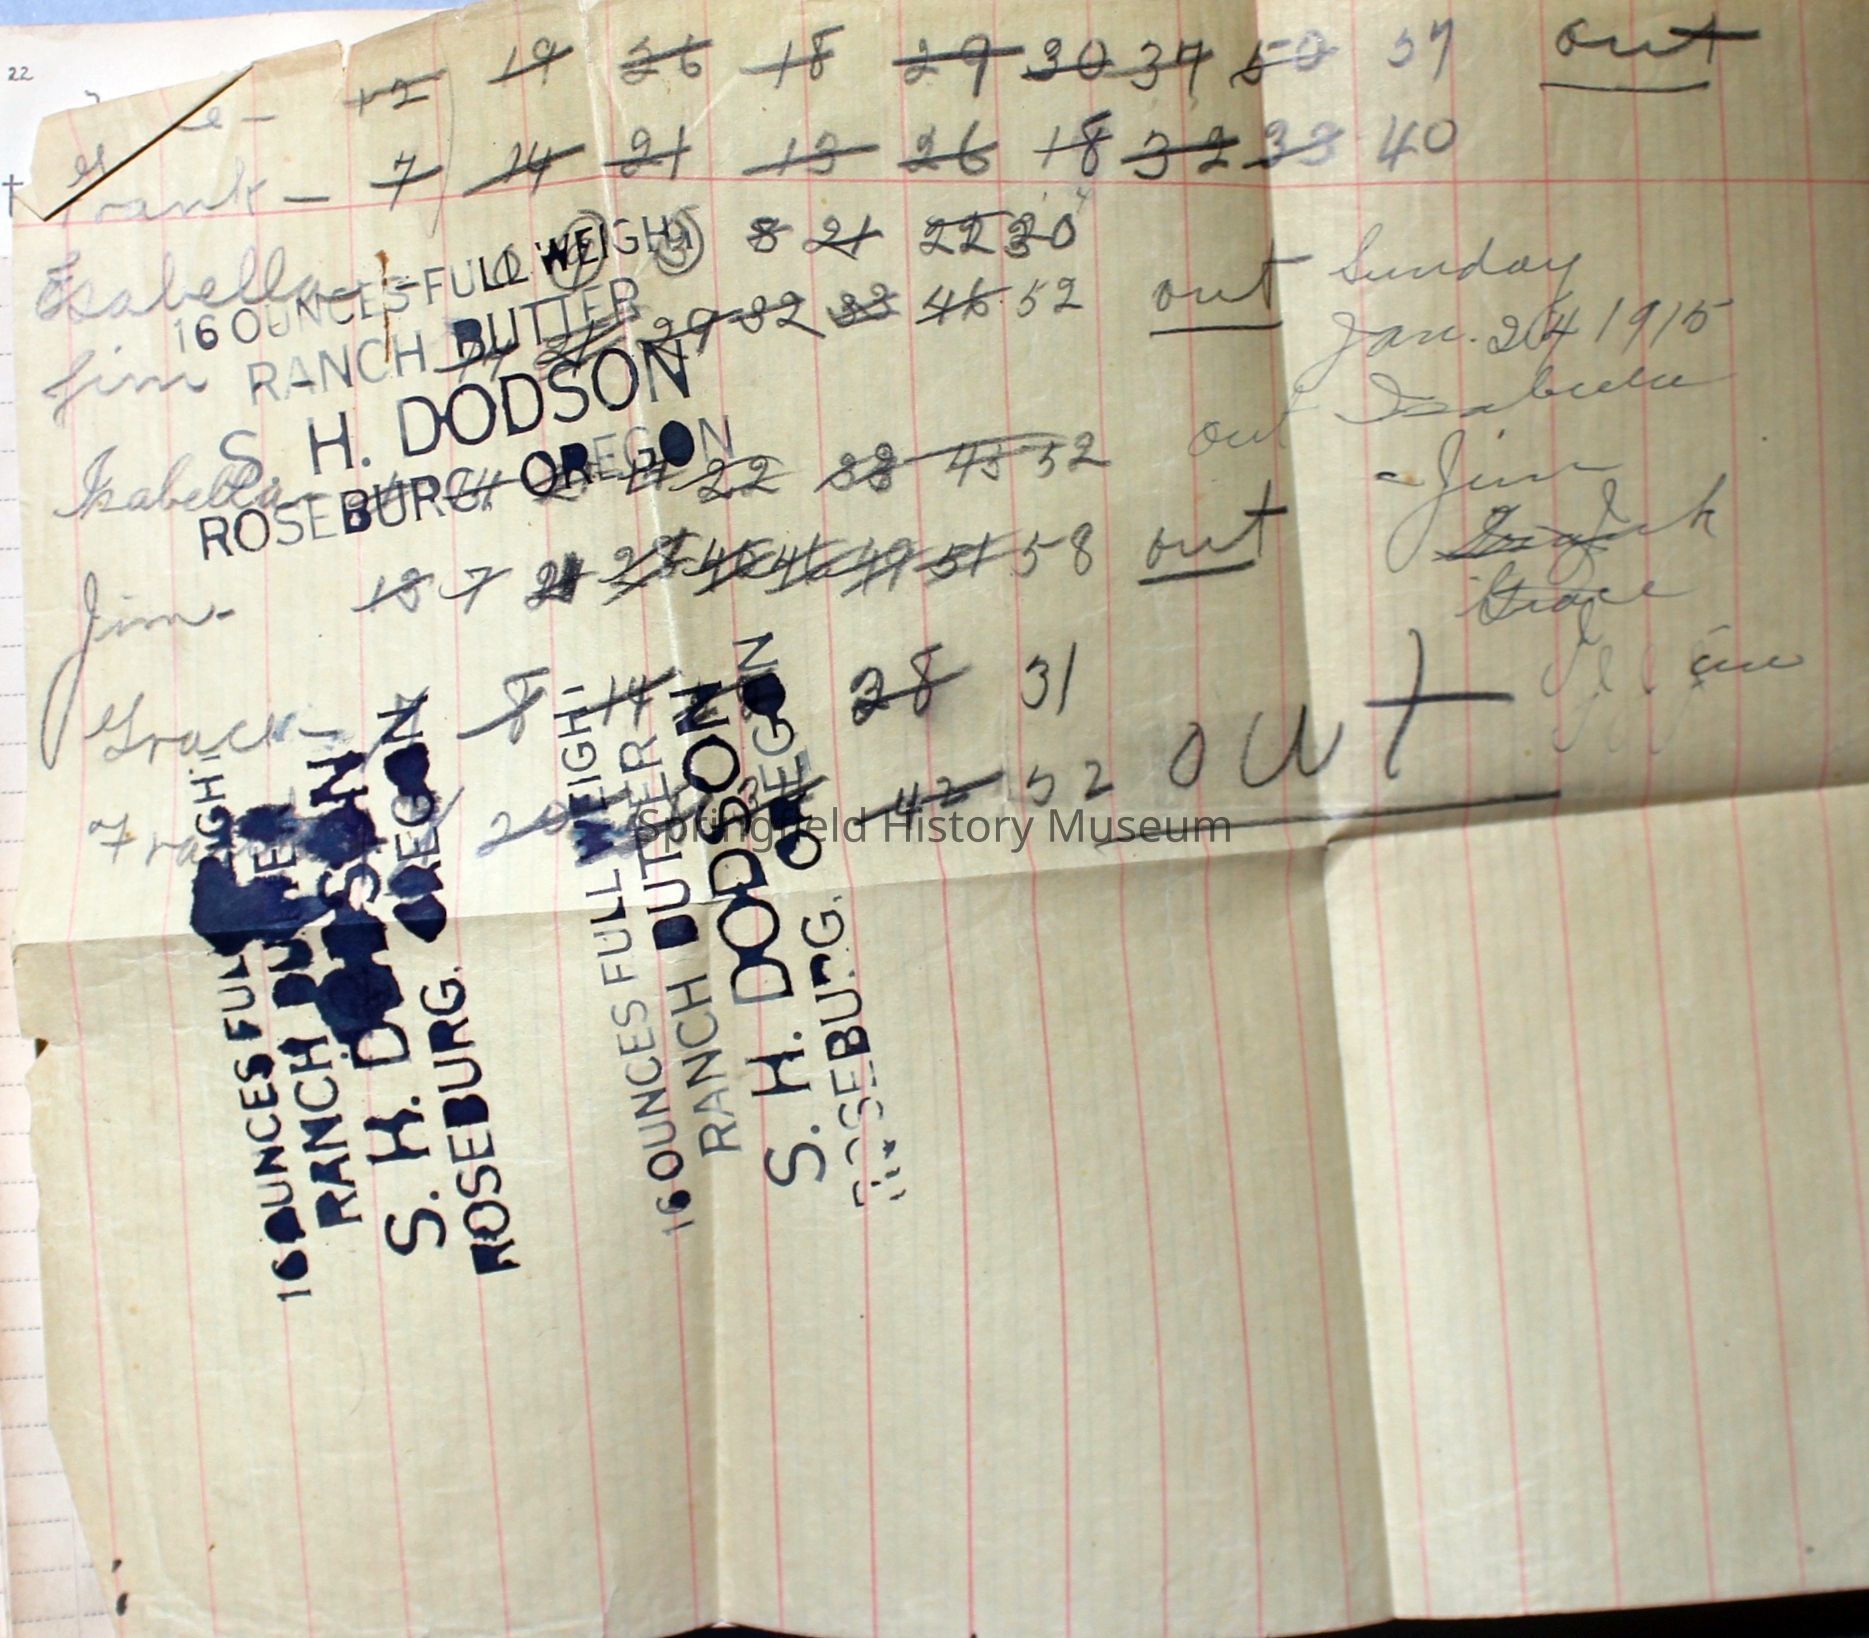 22
12 19 26 18 29 30 37 50 57 out
Frank - 7 14 21 13 26 18 32 33 40
Isabella 8 21 22 30
Jim 29 32 33 46 52 out
Isabella 22 38 45 52 out
Jim - 13 7 21 28 45 46 49 51 58 out
Grace - 8 14 28 31
42 52 out
Sunday
Jan. 24 1915
Isabella
- Jim
Frank
Grace
16 OUNCES FULL WEIGHT
RANCH BUTTER
S. H. DODSON
ROSEBURG OREGON
16 OUNCES FULL WEIGHT
RANCH BUTTER
S. H. DODSON
ROSEBURG. OREGON
16 OUNCES FULL WEIGHT
RANCH BUTTER
S. H. DODSON
ROSEBURG. OREGON
Springfield History Museum